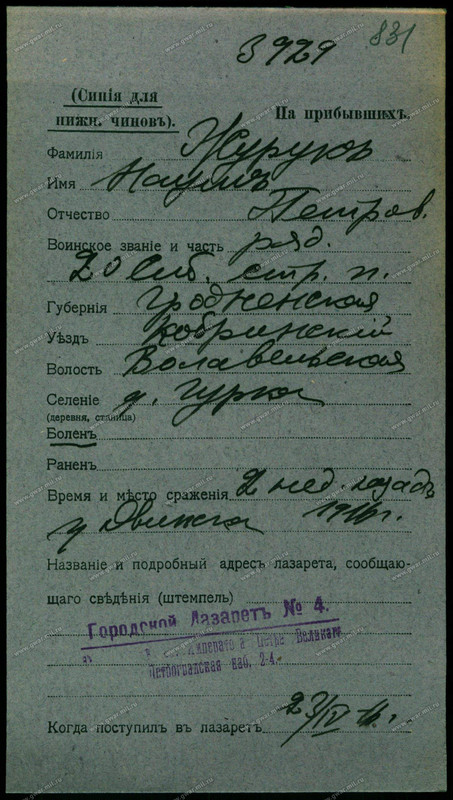 831
3929
(Синія для
нижн. чиновъ).
На прибывшихъ.
Фамилія Журукъ
Имя Наумъ
Отчество Петров.
Воинское званіе и часть ряд.
20 Сиб. стр. п.
Губернія Гродненская
Уѣздъ Кобринскій
Волость Волавельская
Селеніе д. Гурка
(деревня, станица)
Боленъ
Раненъ
Время и мѣсто сраженія 2 нед. назадъ
у Двинска 1916 г.
Названіе и подробный адресъ лазарета, сообщаю-
щаго свѣдѣнія (штемпель)
Городской Лазаретъ № 4.
Императора Петра Великаго
Петроградская наб. 2-4.
Когда поступилъ въ лазаретъ 23/IV 16 г.